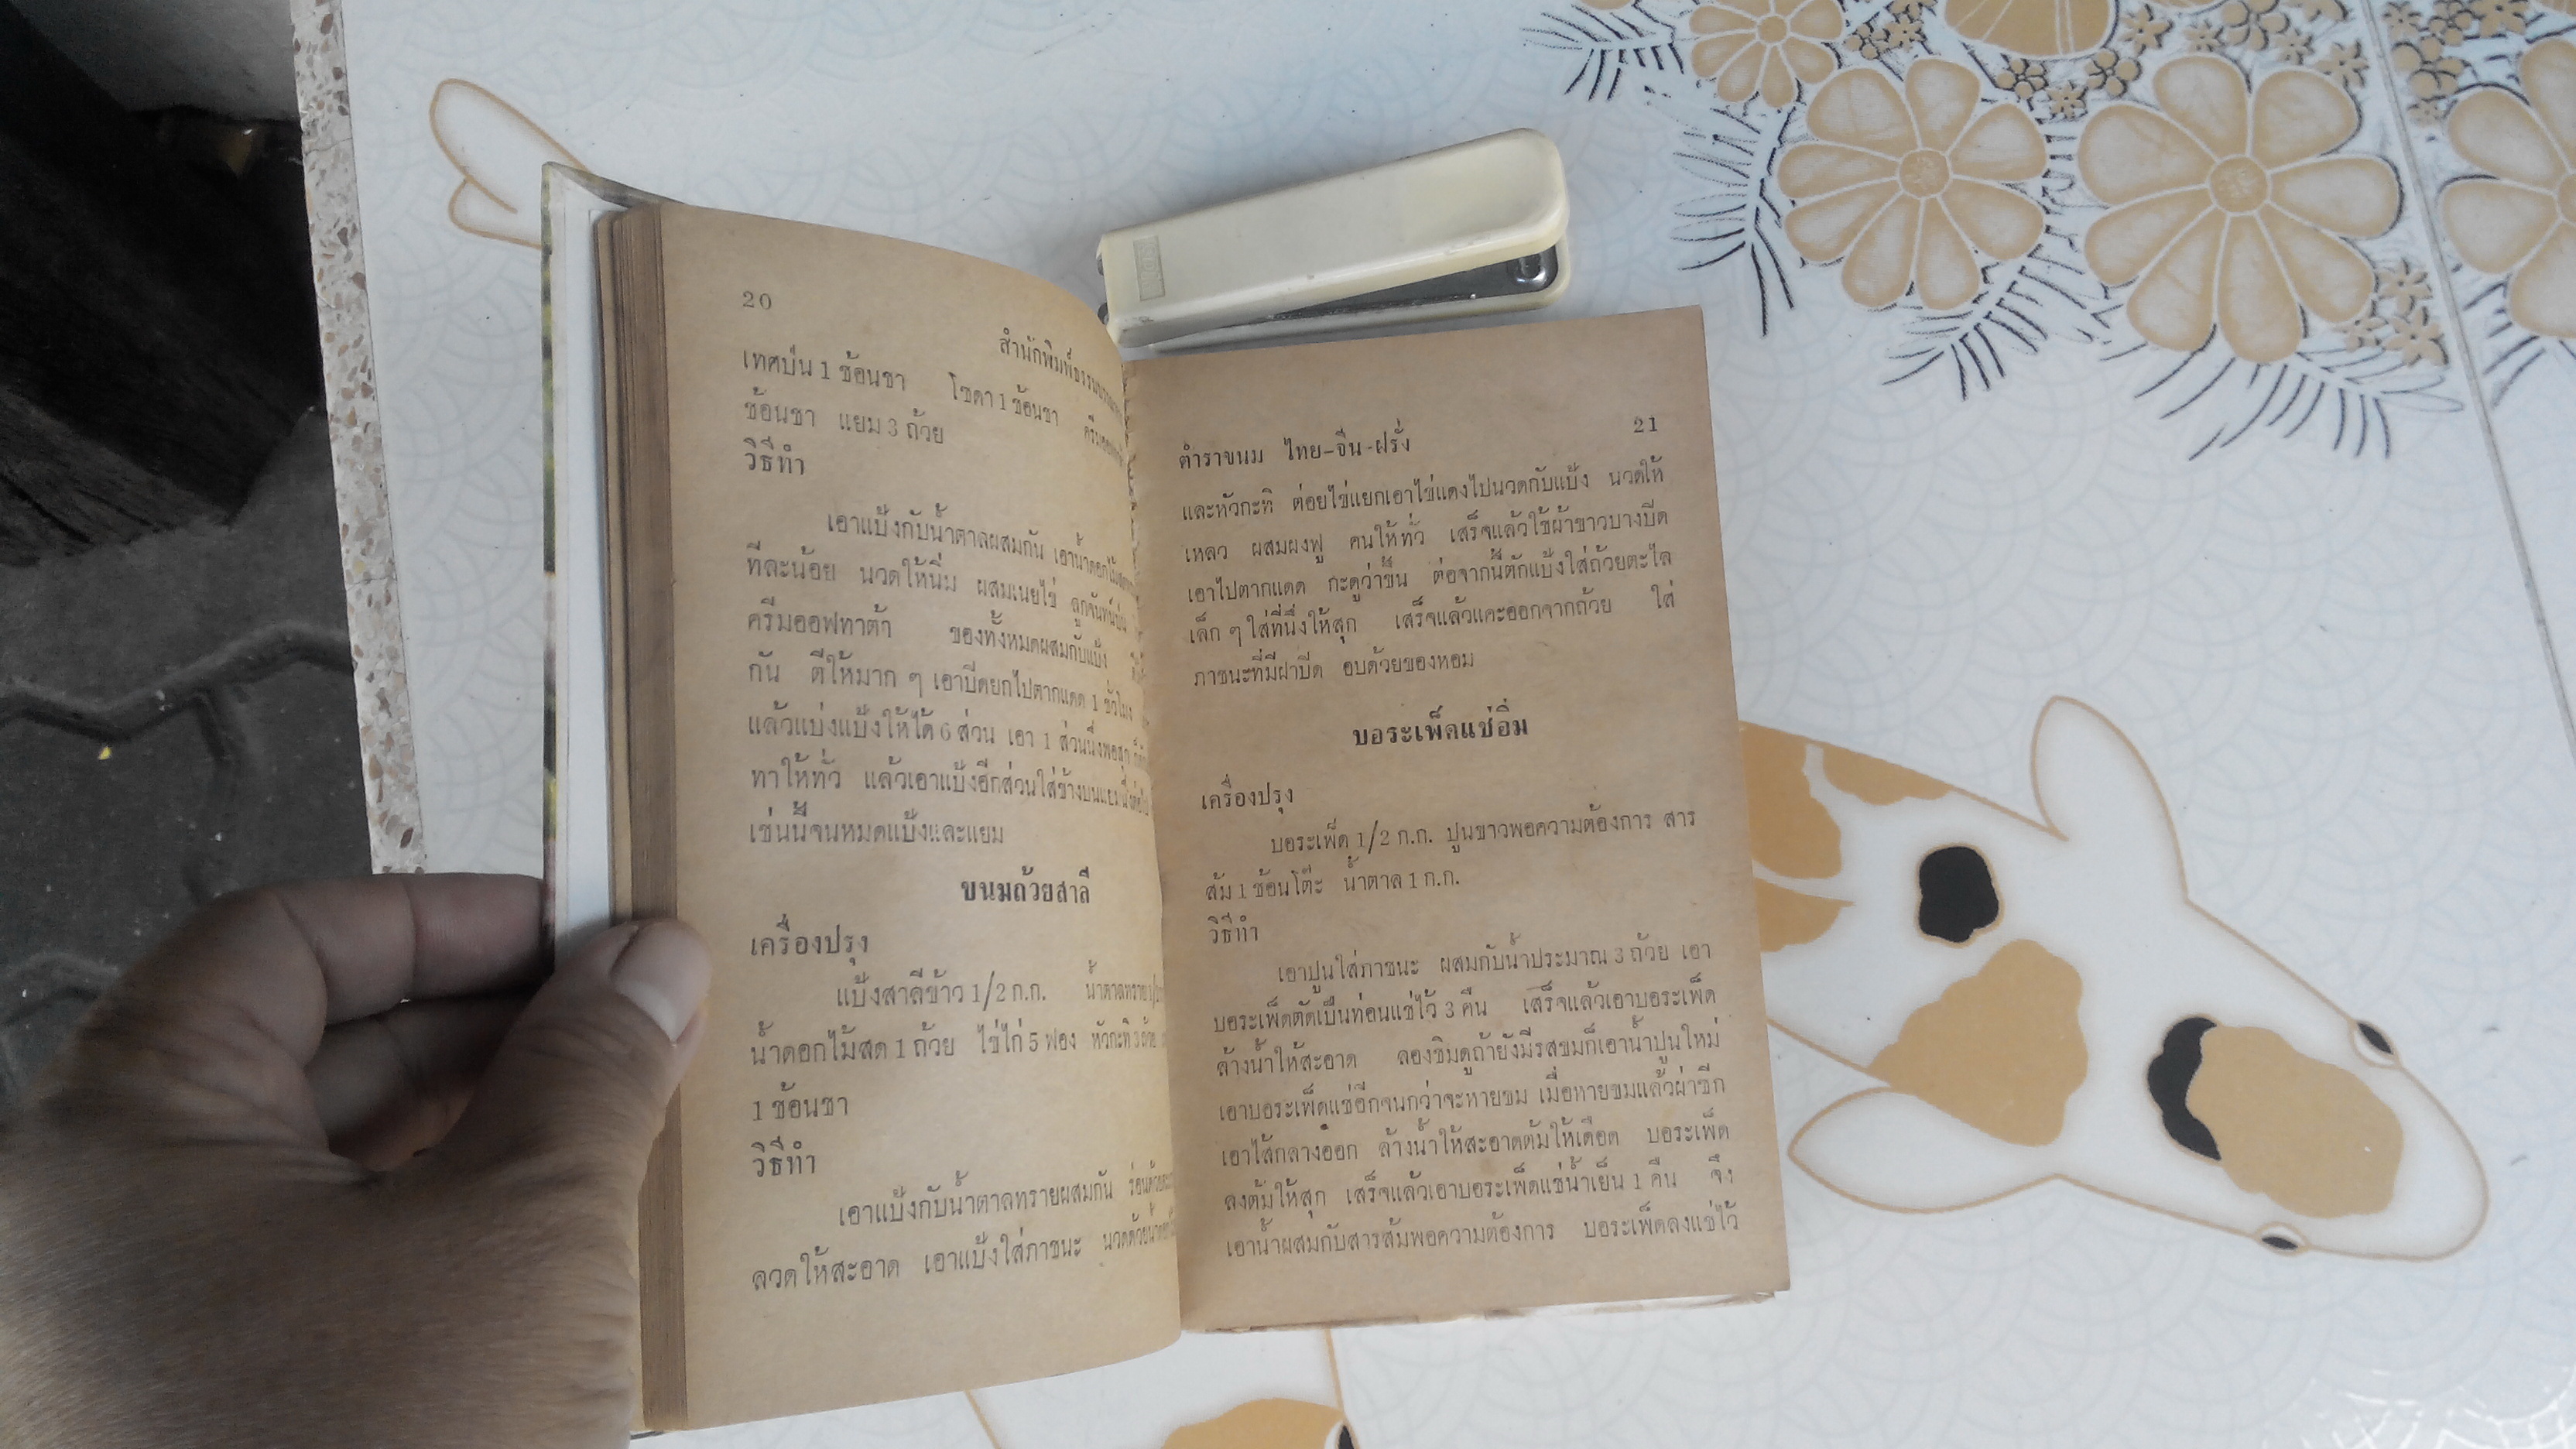 20
สำนักพิมพ์
เทศป่น 1 ช้อนชา โซดา 1 ช้อนชา
ช้อนชา แยม 3 ถ้วย
วิธีทำ
เอาแป้งกับน้ำตาลผสมกัน เอาน้ำดอกไม้
ทีละน้อย นวดให้นิ่ม ผสมเนยไข่ ลูกจันทน์ป่น
ครีมออฟทาต้า ของทั้งหมดผสมกับแป้ง
กัน ตีให้มาก ๆ เอาปิดยกไปตากแดด 1 ชั่วโมง
แล้วแบ่งแป้งให้ได้ 6 ส่วน เอา 1 ส่วนนึ่งพอสุก
ทาให้ทั่ว แล้วเอาแป้งอีกส่วนใส่ข้างบนแยม
เช่นนี้จนหมดแป้งและแยม
ขนมถ้วยสาลี
เครื่องปรุง
แป้งสาลีข้าว 1/2 ก.ก. น้ำตาลทราย
น้ำดอกไม้สด 1 ถ้วย ไข่ไก่ 5 ฟอง หัวกะทิ 3 ถ้วย
1 ช้อนชา
วิธีทำ
เอาแป้งกับน้ำตาลทรายผสมกัน
ลวดให้สะอาด เอาแป้งใส่ภาชนะ
21
ตำราขนม ไทย-จีน-ฝรั่ง
และหัวกะทิ ต่อยไข่แยกเอาไข่แดงไปนวดกับแป้ง นวดให้
เหลว ผสมผงฟู คนให้ทั่ว เสร็จแล้วใช้ผ้าขาวบางปิด
เอาไปตากแดด กะดูว่าขึ้น ต่อจากนี้ตักแป้งใส่ถ้วยตะไล
เล็ก ๆ ใส่ที่นึ่งให้สุก เสร็จแล้วแคะออกจากถ้วย ใส่
ภาชนะที่มีฝาปิด อบด้วยของหอม
บอระเพ็ดแช่อิ่ม
เครื่องปรุง
บอระเพ็ด 1/2 ก.ก. ปูนขาวพอความต้องการ สาร
ส้ม 1 ช้อนโต๊ะ น้ำตาล 1 ก.ก.
วิธีทำ
เอาปูนใส่ภาชนะ ผสมกับน้ำประมาณ 3 ถ้วย เอา
บอระเพ็ดตัดเป็นท่อนแช่ไว้ 3 คืน เสร็จแล้วเอาบอระเพ็ด
ล้างน้ำให้สะอาด ลองชิมดูถ้ายังมีรสขมก็เอาน้ำปูนใหม่
เอาบอระเพ็ดแช่อีกจนกว่าจะหายขม เมื่อหายขมแล้วผ่าซีก
เอาไส้กลางออก ล้างน้ำให้สะอาดต้มให้เดือด บอระเพ็ด
ลงต้มให้สุก เสร็จแล้วเอาบอระเพ็ดแช่น้ำเย็น 1 คืน จึง
เอาน้ำผสมกับสารส้มพอความต้องการ บอระเพ็ดลงแช่ไว้